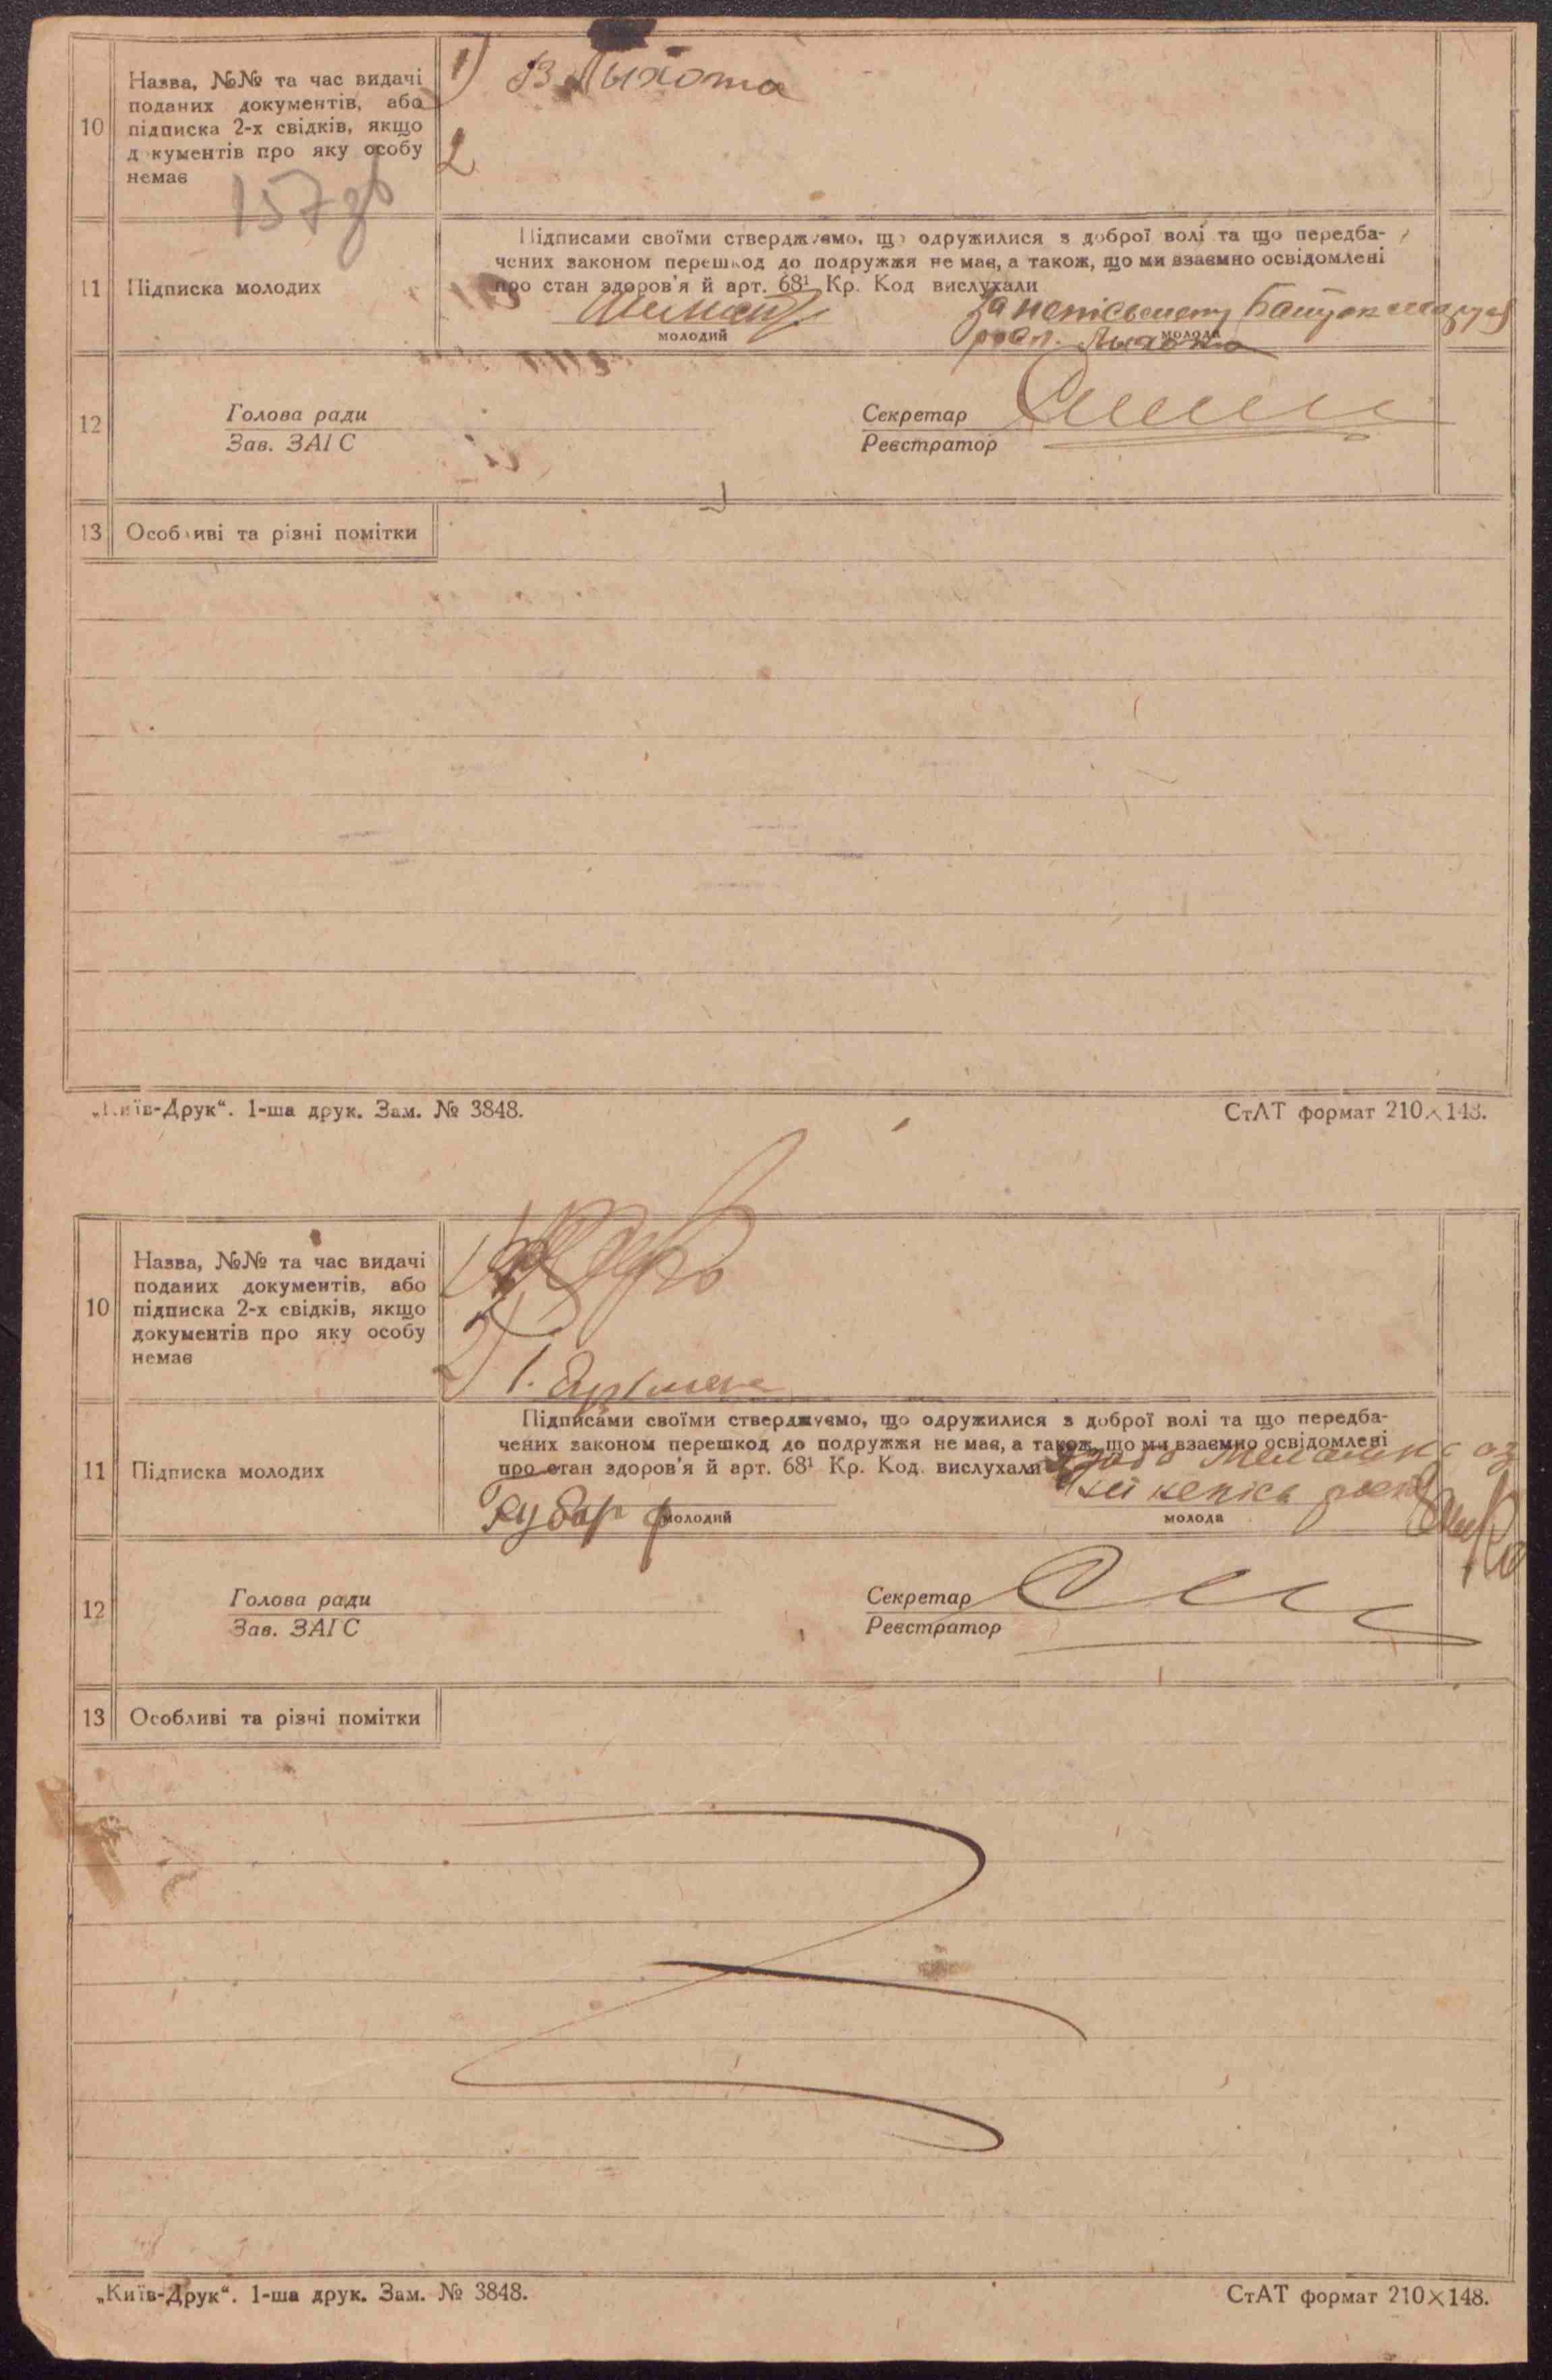 10
Назва, №№ та час видачі
поданих документів, або
підписка 2-х свідків, якщо
д кументів про яку особу
немає
1) В Лихота
2
157
11
Підписка молодих
Підписами своїми стверджуємо, що одружилися з доброї волі та що передба-
чених законом перешкод до подружжя не має, а також, що ми взаємно освідомлені
про стан здоров'я й арт. 68¹ Кр. Код вислухали
За неписьменну
молодий
молода
росп. Лихота
12
Голова ради
Зав. ЗАГС
Секретар
Реєстратор
13
Особливі та різні помітки
„Київ-Друк“. 1-ша друк. Зам. № 3848.
СтАТ формат 210×148.
10
Назва, №№ та час видачі
поданих документів, або
підписка 2-х свідків, якщо
документів про яку особу
немає
1)
2) І.
11
Підписка молодих
Підписами своїми стверджуємо, що одружилися з доброї волі та що передба-
чених законом перешкод до подружжя не має, а також, що ми взаємно освідомлені
про стан здоров'я й арт. 68¹ Кр. Код. вислухали
Губар
молодий
молода
12
Голова ради
Зав. ЗАГС
Секретар
Реєстратор
13
Особливі та різні помітки
„Київ-Друк“. 1-ша друк. Зам. № 3848.
СтАТ формат 210×148.